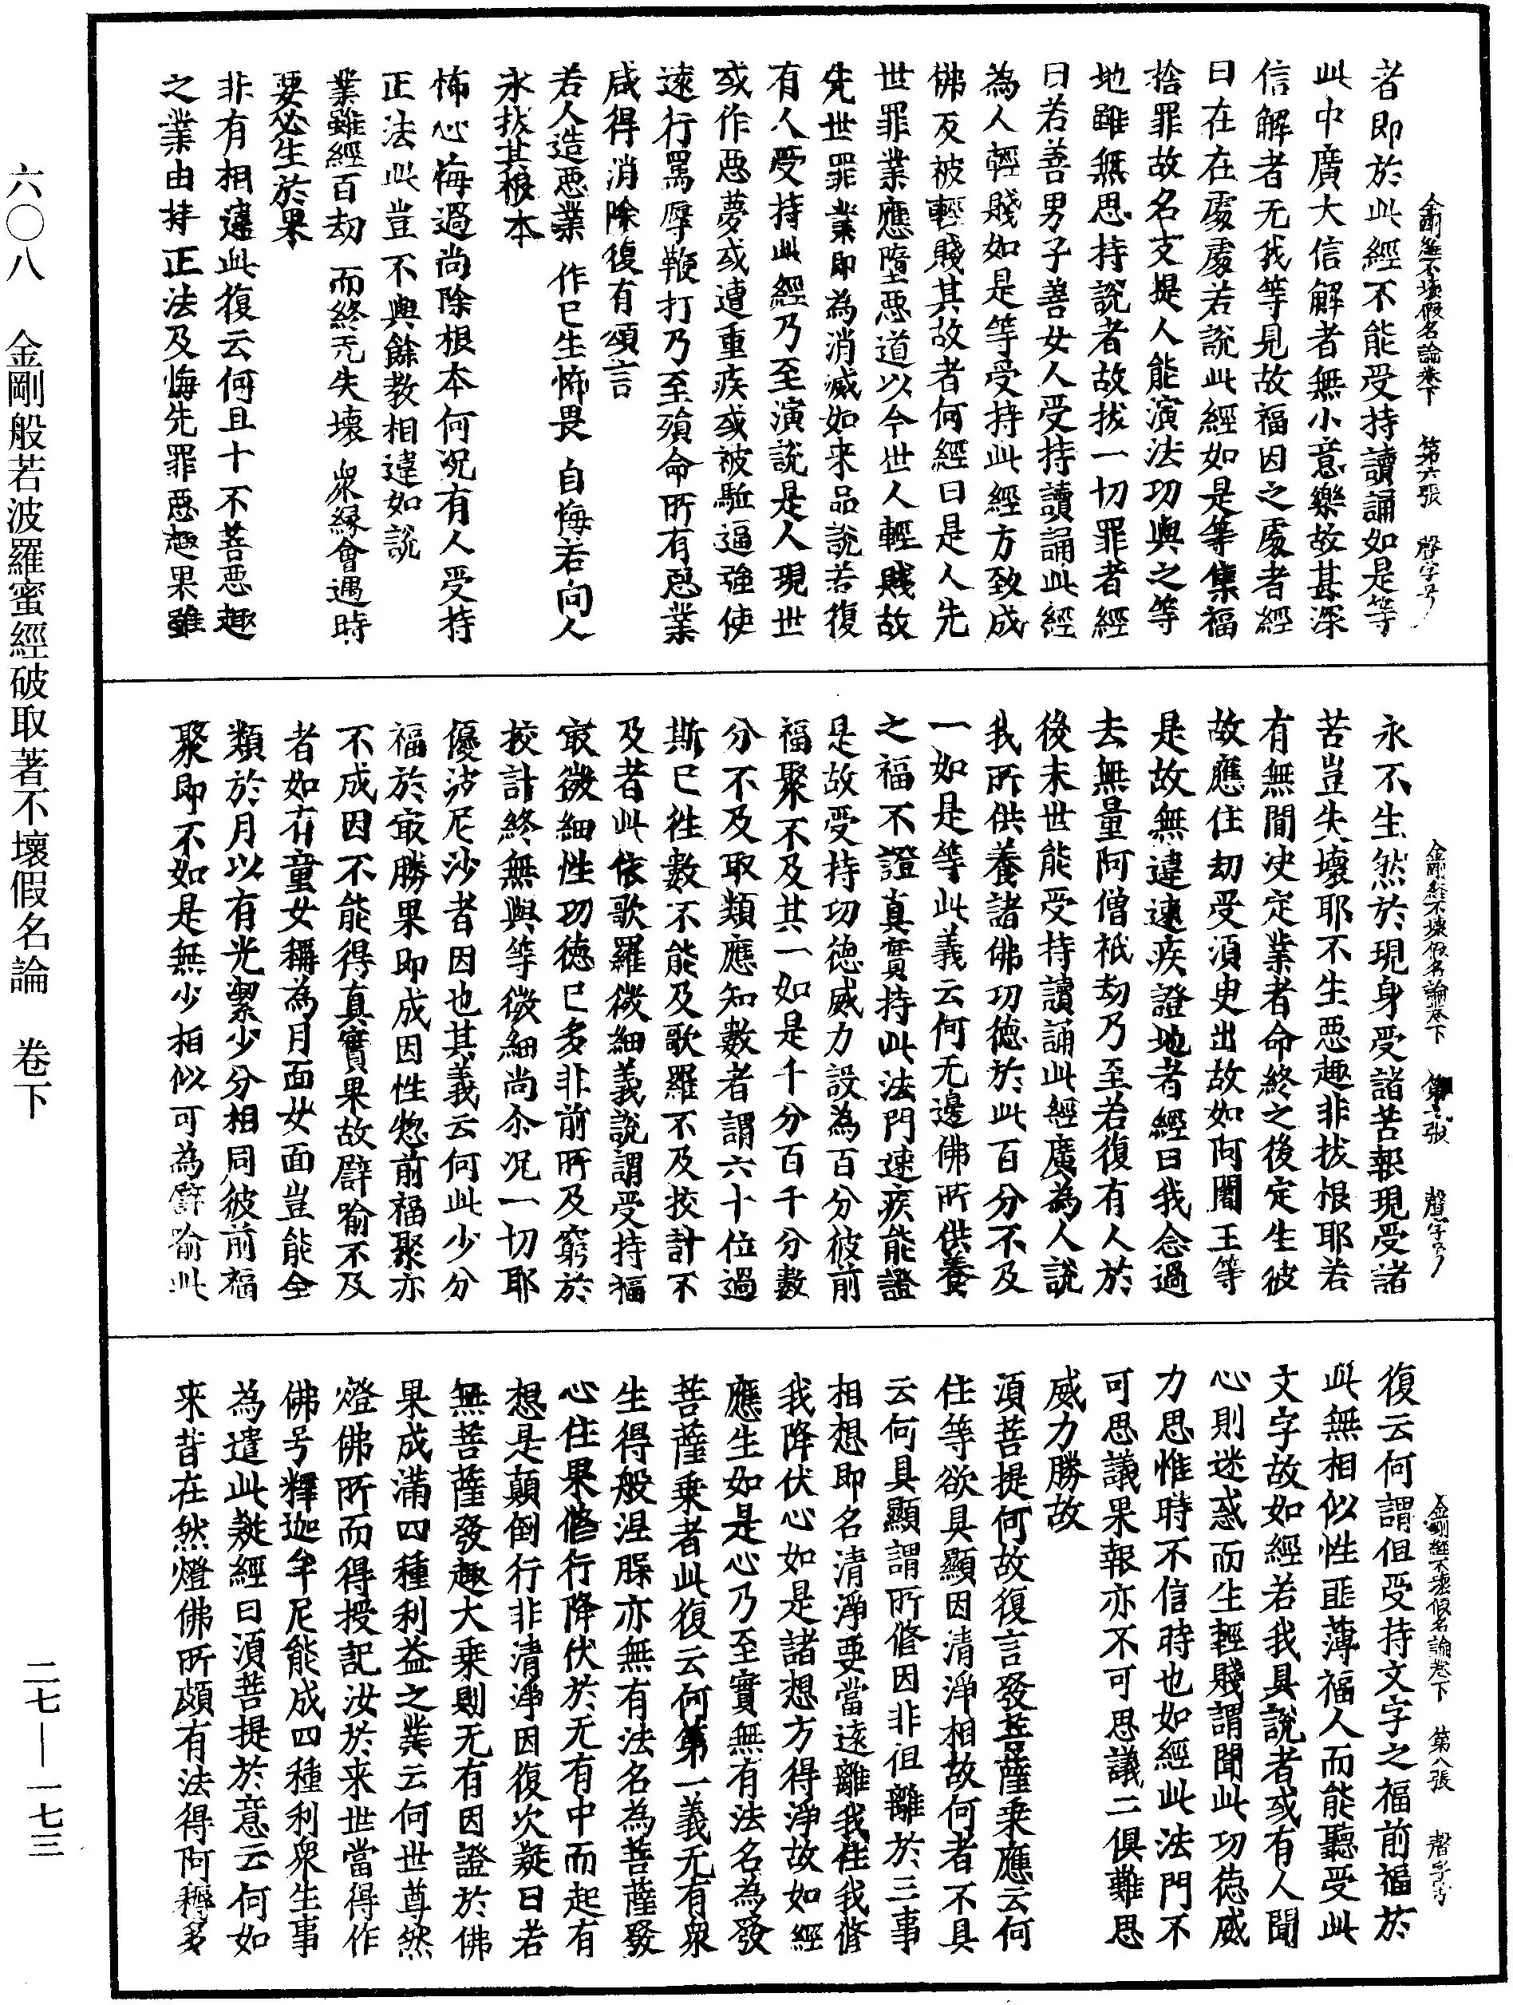 金剛經不壞假名論卷下 第六張 聲字号
者即於此經不能受持讀誦如是等
此中廣大信解者無小意樂故甚深
信解者无我等見故福因之處者經
曰在在處處若說此經如是等集福
捨罪故名支提人能演法功與之等
地雖無思持說者故拔一切罪者經
曰若善男子善女人受持讀誦此經
為人輕賤如是等受持此經方致成
佛反被輕賤其故者何經曰是人先
世罪業應墮惡道以今世人輕賤故
先世罪業即為消滅如来品說若復
有人受持此經乃至演說是人現世
或作惡夢或遭重疾或被駈逼強使
遠行罵辱鞭打乃至殞命所有惡業
咸得消除復有頌言
若人造惡業 作已生怖畏 自悔若向人
永拔其根本
怖心悔過尚除根本何況有人受持
正法此豈不與餘教相違如說
業雖經百劫 而終无失壞 衆緣會遇時
要必生於果
非有相違此復云何且十不善惡趣
之業由持正法及悔先罪惡趣果雖
金剛經不壞假名論卷下 張 聲字号
永不生然於現身受諸苦報現受諸
苦豈失壞耶不生惡趣非拔根耶若
有無間決定業者命終之後定生彼
故應住劫受須臾出故如阿闍王等
是故無違速疾證地者經曰我念過
去無量阿僧祇劫乃至若復有人於
後末世能受持讀誦此經廣為人說
我所供養諸佛功德於此百分不及
一如是等此義云何无邊佛所供養
之福不證真實持此法門速疾能證
是故受持功德威力設為百分彼前
福聚不及其一如是千分百千分數
分不及取類應知數者謂六十位過
斯已徃數不能及歌羅不及挍計不
及者此依歌羅微細義說謂受持福
冣微細性功德已多非前所及窮於
挍計終無與等微細尚尒況一切耶
優波尼沙者因也其義云何此少分
福於冣勝果即成因性惣前福聚亦
不成因不能得真實果故譬喻不及
者如有童女稱為月面女面豈能全
類於月以有光潔少分相同彼前福
聚即不如是無少相似可為譬喻此
金剛經不壞假名論卷下 第八張 聲字号
復云何謂但受持文字之福前福於
此無相似性匪薄福人而能聽受此
文字故如經若我具說者或有人聞
心則迷惑而生輕賤謂聞此功德威
力思惟時不信時也如經此法門不
可思議果報亦不可思議二俱難思
威力勝故
須菩提何故復言發菩薩乗應云何
住等欲具顯因清淨相故何者不具
云何具顯謂所修因非徂離於三事
相想即名清淨要當遠離我住我修
我降伏心如是諸想方得淨故如經
應生如是心乃至實無有法名為發
菩薩乗者此復云何第一義无有衆
生得般涅脲亦無有法名為菩薩發
心住果修行降伏於无有中而起有
想是顛倒行非清淨因復次疑曰若
無菩薩發趣大乗則无有因證於佛
果成滿四種利益之業云何世尊然
燈佛所而得授記汝於来世當得作
佛号釋迦牟尼能成四種利衆生事
為遣此疑經曰須菩提於意云何如
来昔在然燈佛所頗有法得阿耨多
六〇八 金剛般若波羅蜜經破取著不壞假名論 卷下
二七—一七三